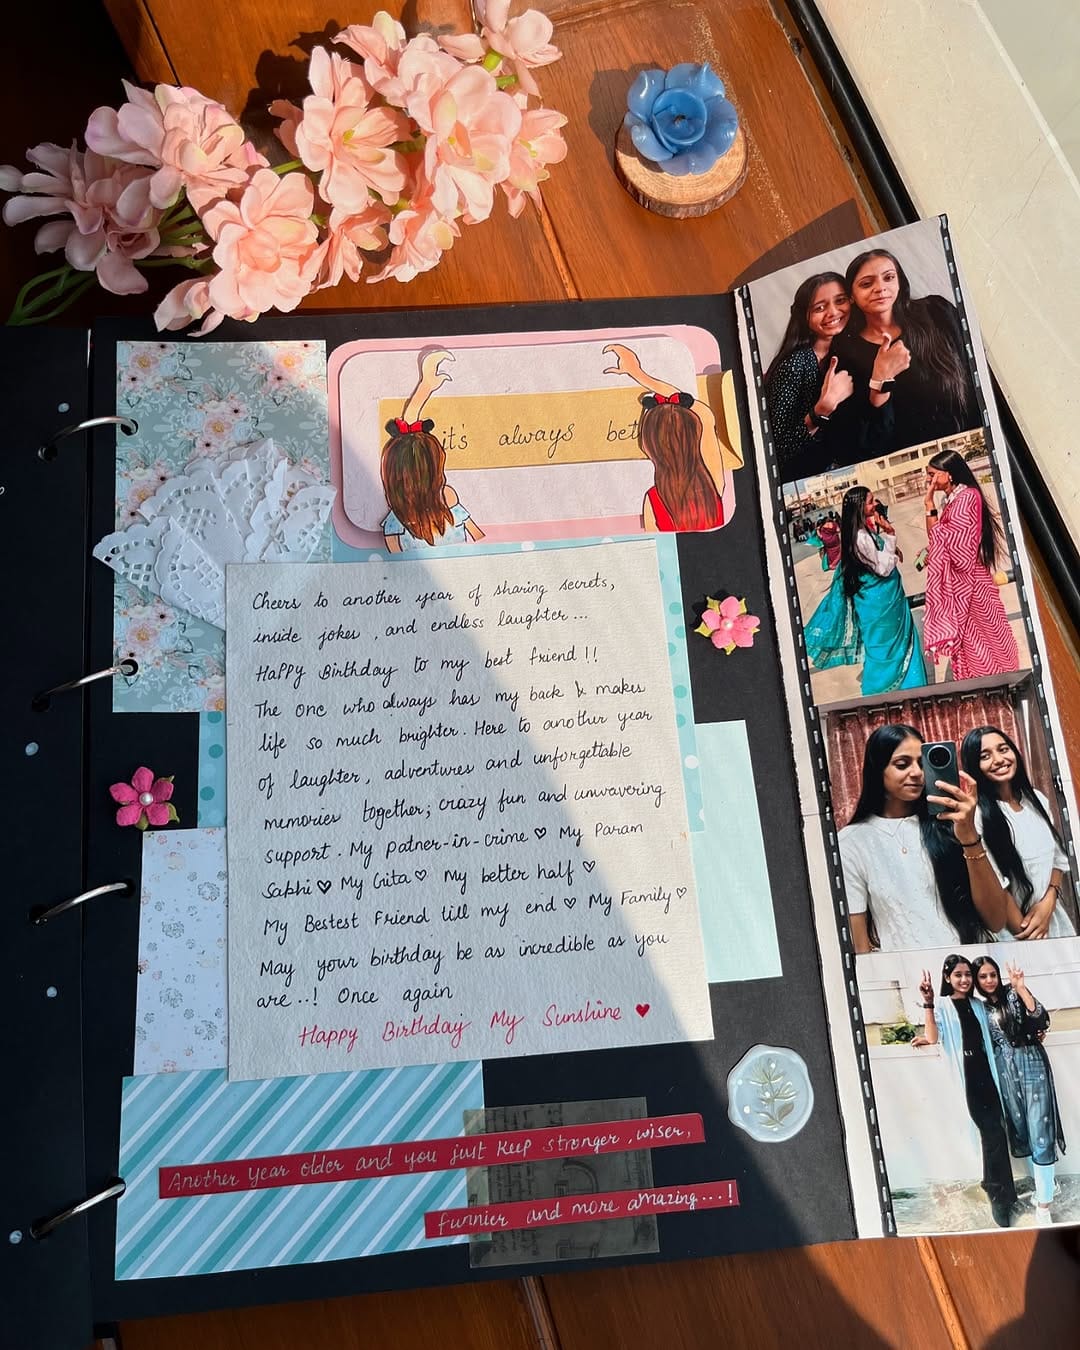 it's always bet
Cheers to another year of sharing secrets,
inside jokes, and endless laughter...
Happy Birthday to my best friend!!
The one who always has my back & makes
life so much brighter. Here to another year
of laughter, adventures and unforgettable
memories together; crazy fun and unwavering
support. My patner-in-crime ♡ My Param
Sakhi ♥ My Gita ♡ My better half ♡
My Bestest Friend till my end ♡ My Family ♡
May your birthday be as incredible as you
are..! Once again
Happy Birthday My Sunshine ♥
Another year older and you just keep stronger, wiser,
funnier and more amazing...!